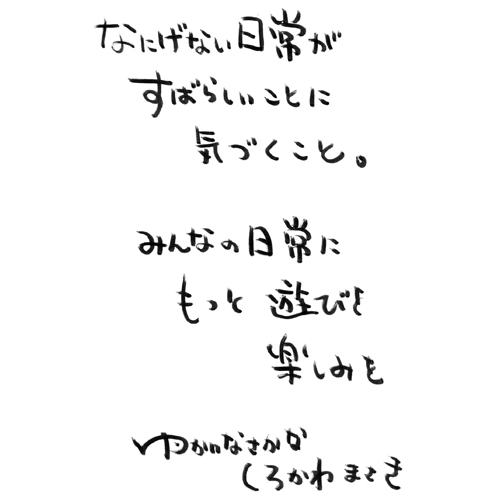 なにげない日常が
すばらしいことに
気づくこと。
みんなの日常に
もっと遊びを
楽しみを
ゆかいなさかな
しろかわまさき